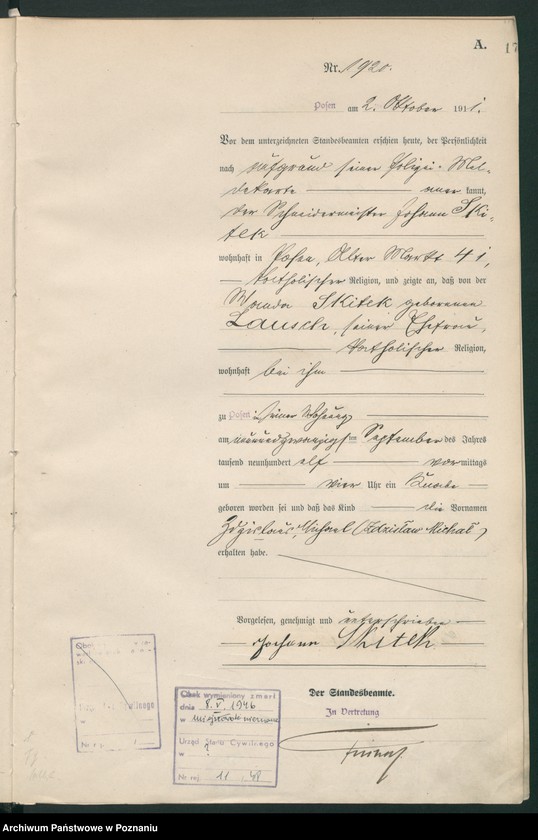 A.
17
Nr. 1920.
Posen am 2. Oktober 1911.
Vor dem unterzeichneten Standesbeamten erschien heute, der Persönlichkeit
nach aufgrund seiner Polizei-Mel-
dekarte kannt,
der Schneidermeister Johann Ski-
tek
wohnhaft in Posen, Alter Markt 41,
katholischer Religion, und zeigte an, daß von der
Wanda Skitek geborenen
Lausch, seiner Ehefrau,
katholischer Religion,
wohnhaft bei ihm
zu Posen in seiner Wohnung
am neunundzwanzigsten September des Jahres
tausend neunhundert elf vormittags
um vier Uhr ein Knabe
geboren worden sei und daß das Kind die Vornamen
Michael (Zdzisław Michał)
erhalten habe.
Vorgelesen, genehmigt und unterschrieben
Johann Skitek
Der Standesbeamte.
In Vertretung
Obok wymieniony zmarł
dnia 8.V.1946
w
Urząd Stanu Cywilnego
w
Nr rej. 11
Archiwum Państwowe w Poznaniu